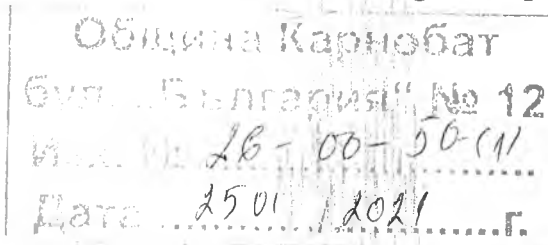 Община Карнобат
бул. „България“ № 12
Изх. № 26-00-50-(1)
Дата 25 01 / 2021 г.